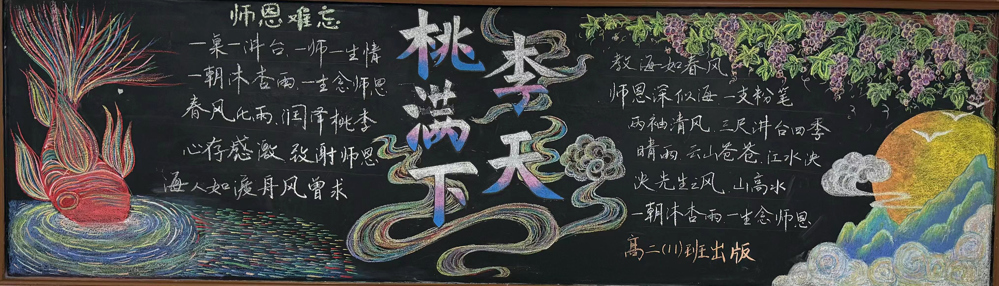 师恩难忘
一桌一讲台一师一生情
一朝沐杏雨一生念师恩
春风化雨润泽桃李
心存感激致谢师恩
海人如渡舟风曾求
桃李
满天
下
教海如春风
师恩深似海一支粉笔
两袖清风三尺讲台四季
晴雨云山苍苍江水泱
泱先生之风山高水
一朝沐杏雨一生念师恩
高二(11)班出版